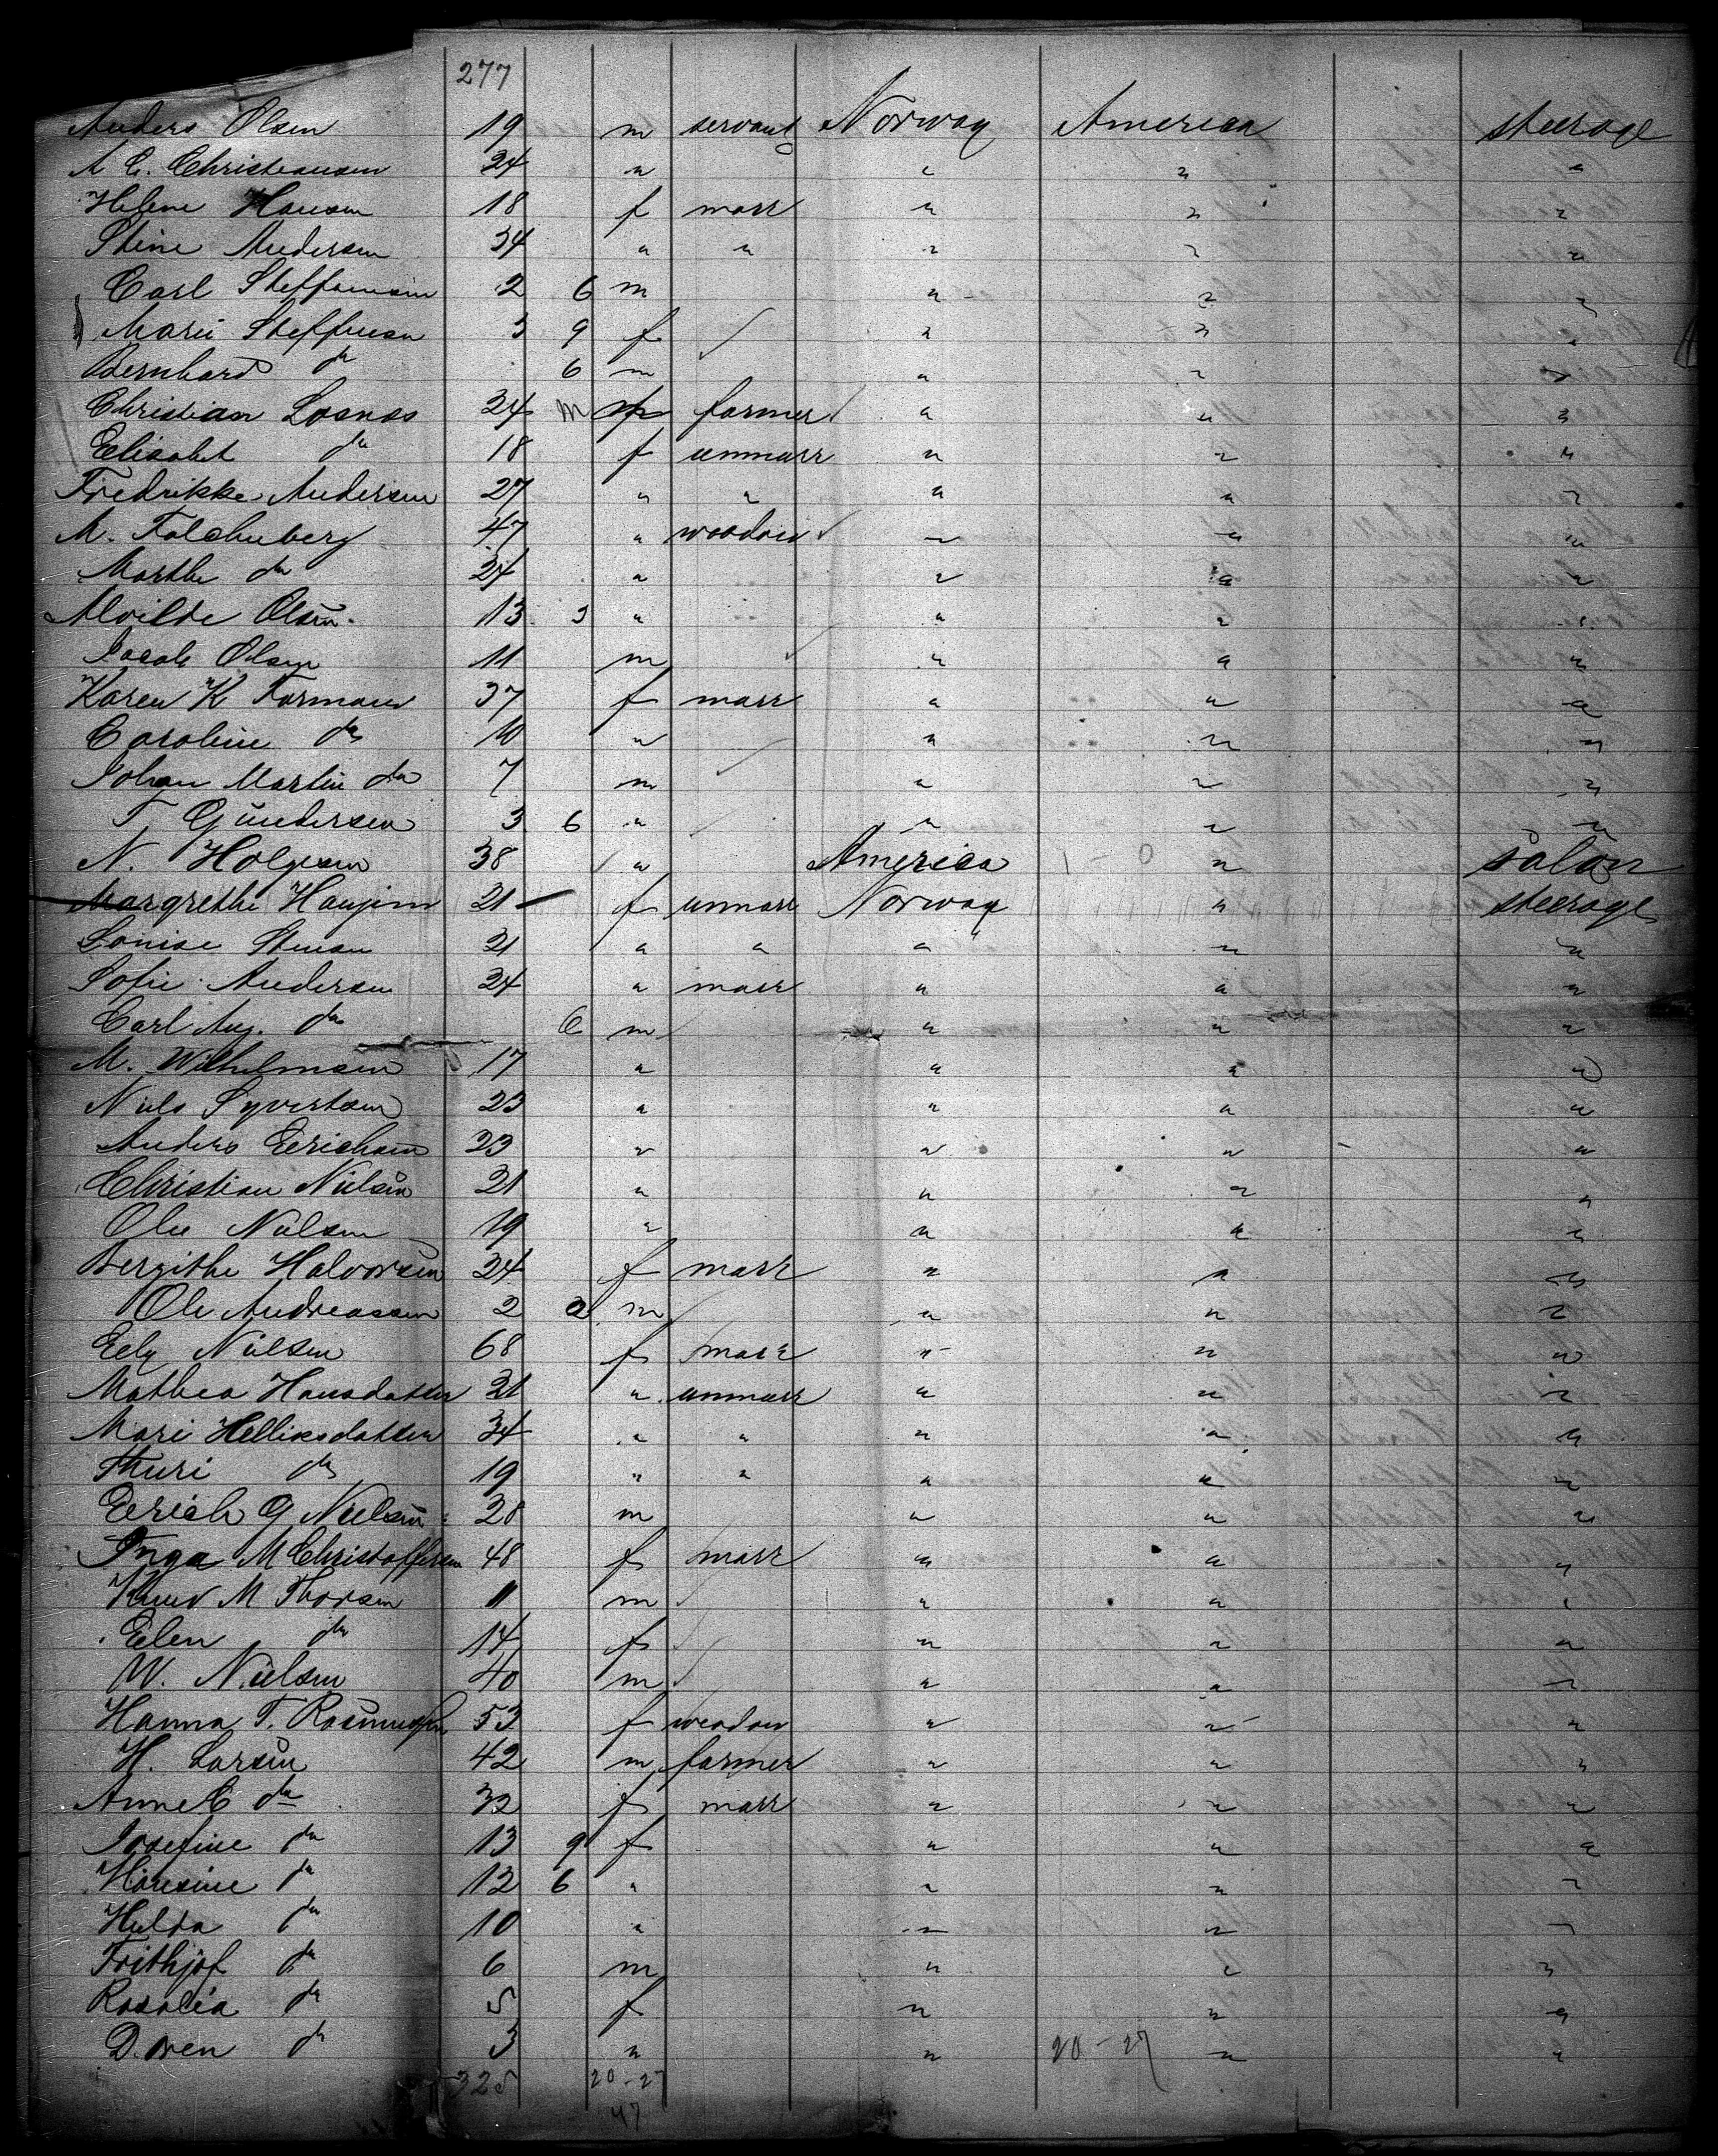 277
Anders Olsen 19 m servant Norway America steerage
A C. Christiansen 24 " " " "
Helene Hansen 18 f marr " " "
Stine Andersen 34 " " " " "
Carl Steffensen 2 6 m " " "
Marie Steffensen 3 9 f " " "
Bernhard do 6 m " " "
Christian Losnes 24 m farmer " " "
Elisabet do 18 f unmarr " " "
Fredrikke Andersen 27 " " " " "
M. Falchenberg 47 " woodow " " "
Marthe do 24 " " " "
Alvilde Olsen 13 3 " " " "
Jacob Olsen 11 m " " "
Karen K Formann 37 f marr " " "
Caroline do 10 " " " "
Johan Martin do 7 m " " "
T Gundersen 3 6 " " " "
N. Holgesen 38 " America 1 - 0 " salon
Margrethe 21 f unmarr Norway " steerage
Louise 21 " " " " "
Sofie Andersen 24 " marr " " "
Carl Aug. do 6 m " " "
M. Wilhelmsen 17 " " " "
Niels Syvertsen 23 " " " "
Anders Eerichsen 23 " " " "
Christian Nielsen 21 " " " "
Ole Nielsen 19 " " " "
Bergithe Halvorsen 34 f marr " " "
Ole Andreassen 2 2 m " " "
Eely Nielsen 68 f marr " " "
Mathea Hansdatter 21 " unmarr " " "
Mari Helliksdatter 34 " " " " "
Thuri do 19 " " " " "
Eerich G Nielsen 28 m " " "
Inga M Christoffersen 48 f marr " " "
Knud M Thorsen 11 m " " "
Eelen do 14 f " " "
W. Nielsen 40 m " " "
Hanna T. 53 f weodow " " "
H. Larsen 42 m farmer " " "
Anne C do 32 f marr " " "
Josefine do 13 9 f " " "
Hansine do 12 6 " " " "
Hulda do 10 " " " "
Frithjof do 6 m " " "
Rosalia do 5 f " " "
do 3 " " 20 - 27 " "
325 20 - 27
47